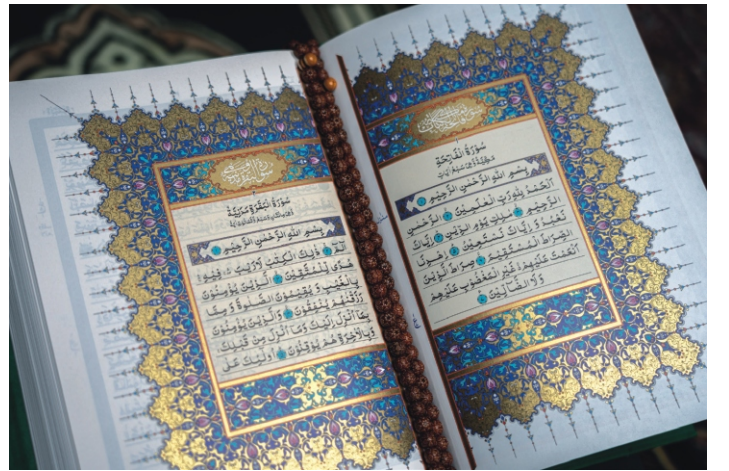 سُورَةُ الْفَاتِحَةِ
بِسْمِ اللهِ الرَّحْمٰنِ الرَّحِيمِ
اَلْحَمْدُ لِلّٰهِ رَبِّ الْعٰلَمِينَ الرَّحْمٰنِ
الرَّحِيمِ مٰلِكِ يَوْمِ الدِّينِ إِيَّاكَ
نَعْبُدُ وَ إِيَّاكَ نَسْتَعِينُ اِهْدِنَا
الصِّرَاطَ الْمُسْتَقِيمَ صِرَاطَ الَّذِينَ
أَنْعَمْتَ عَلَيْهِمْ غَيْرِ الْمَغْضُوبِ عَلَيْهِمْ
وَ لَا الضَّالِّينَ
سُورَةُ الْبَقَرَةِ مَدَنِيَّةٌ
بِسْمِ اللهِ الرَّحْمٰنِ الرَّحِيمِ
الٓمٓ ذٰلِكَ الْكِتٰبُ لَا رَيْبَ فِيهِ
هُدًى لِلْمُتَّقِينَ الَّذِينَ يُؤْمِنُونَ
بِالْغَيْبِ وَ يُقِيمُونَ الصَّلٰوةَ وَ مِمَّا
رَزَقْنٰهُمْ يُنْفِقُونَ وَالَّذِينَ يُؤْمِنُونَ
بِمَا أُنْزِلَ إِلَيْكَ وَمَا أُنْزِلَ مِنْ قَبْلِكَ
وَ بِالْاٰخِرَةِ هُمْ يُوقِنُونَ أُولٰئِكَ عَلٰى